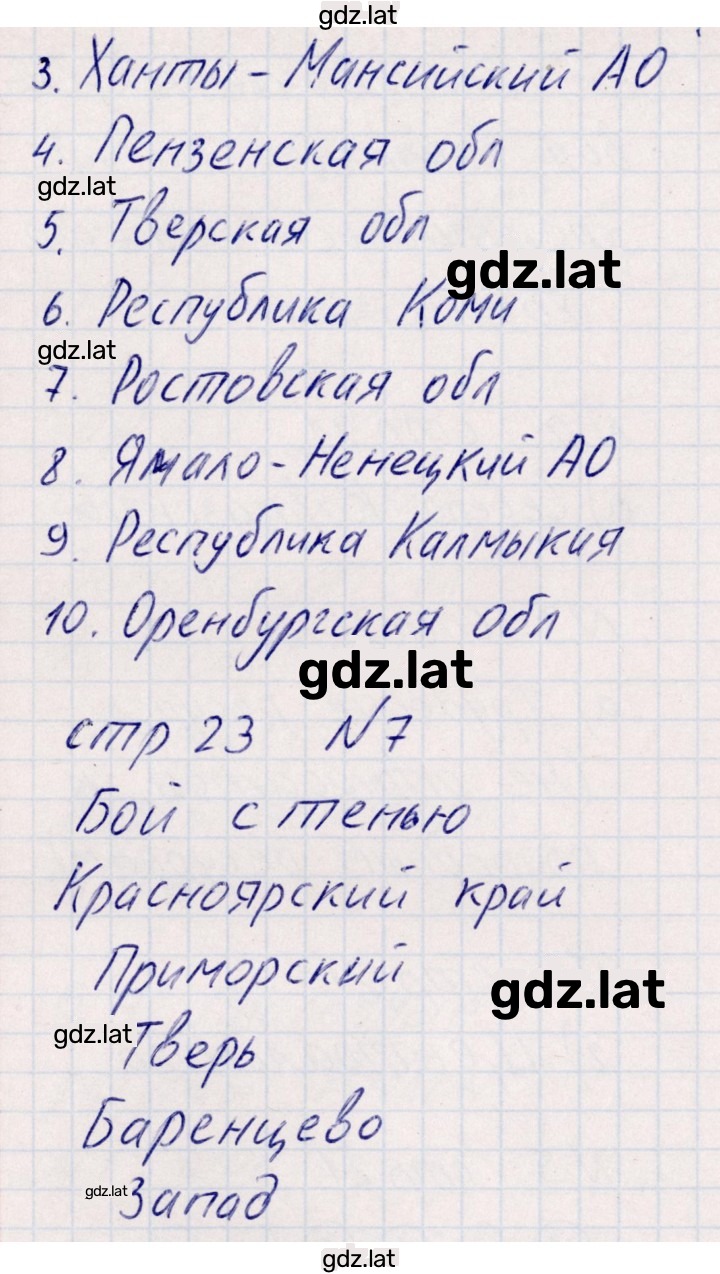 gdz.lat
3. Ханты - Мансийский АО
4. Пензенская обл
gdz.lat
5. Тверская обл
gdz.lat
6. Республика Коми
gdz.lat
7. Ростовская обл
8. Ямало - Ненецкий АО
9. Республика Калмыкия
10. Оренбургская обл
gdz.lat
стр 23 №7
Бой с тенью
Красноярский край
Приморский
gdz.lat
gdz.lat
Тверь
Баренцево
gdz.lat
Запад
gdz.lat